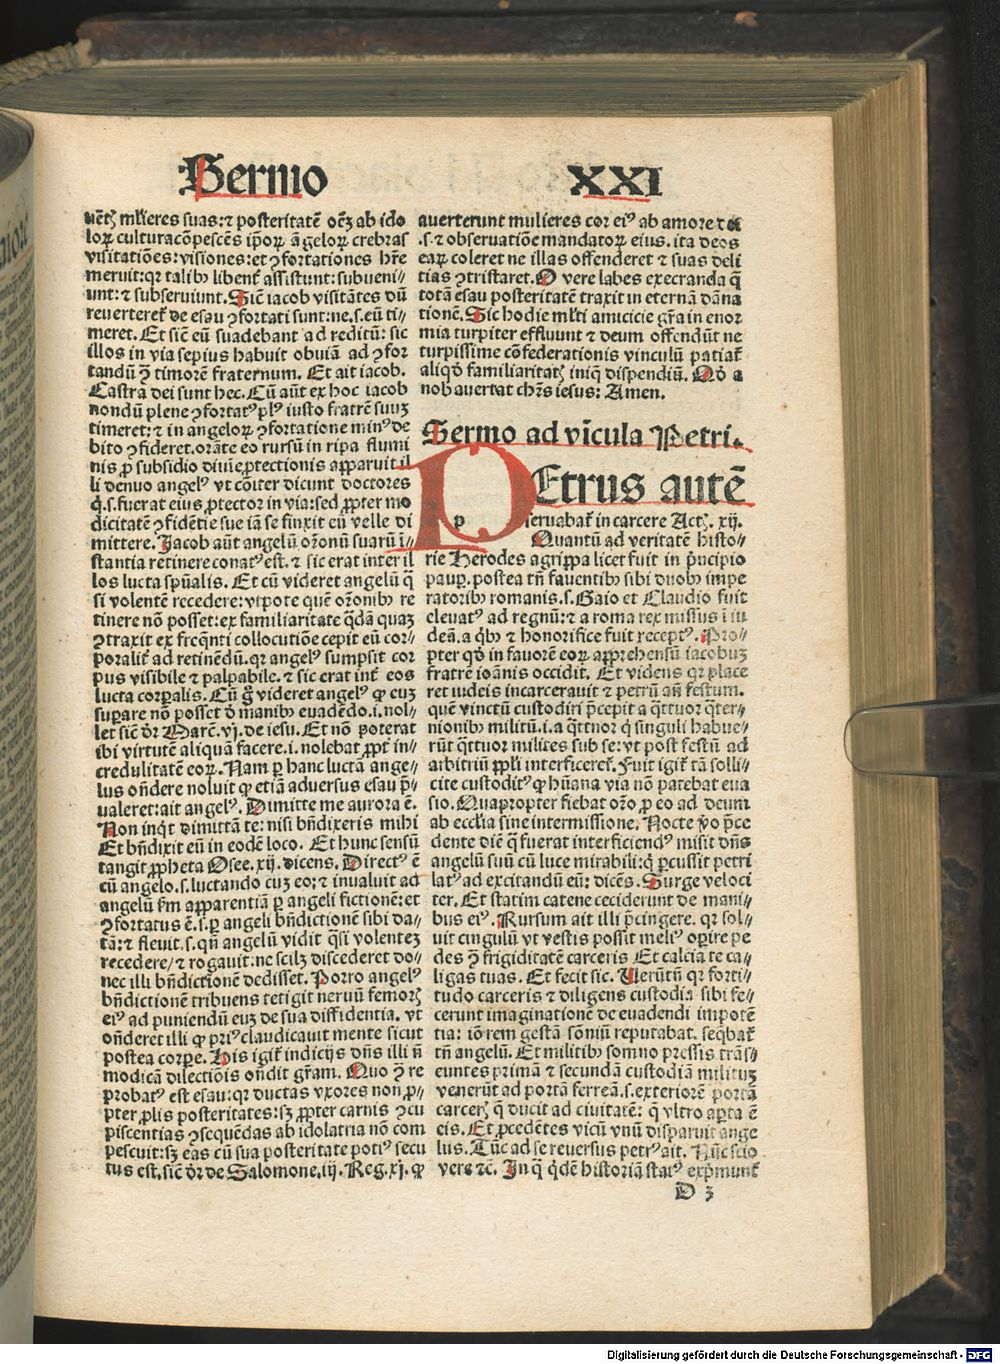 Sermo XXI
uētꝫ mĺieres suas: ⁊ posteritatē ocꝫ ab ido
loꝝ cultura cōpescēs ip̄oꝝ āgeloꝝ crebras
visitatiōes: visiones: et ꝯfortationes hr̄e
meruit: qꝛ talibꝰ libent᷑ assistunt: subueni/
unt: ⁊ subseruiunt. Sic̄ iacob visitātes dū
reuerteret᷑ de esau ꝯfortati sunt: ne .s. eū ti/
meret. Et sic̄ eū suadebant ad reditū: sic
illos in via sepius habuit obuiā ad ꝯfor
tandū ꝯ̄ timorē fraternum. Et ait iacob.
Castra dei sunt hec. Cū aūt ex hoc iacob
nondū plene ꝯfortatꝰ plꝰ iusto fratrē suuꝫ
timeret: ⁊ in angeloꝝ ꝯfortatione minꝰ de
bito ꝯfideret. orāte eo rursū in ripa flumi
nis ꝓ subsidio diuīe ꝓtectionis apparuit il
li denuo angelꝰ vt cōiter dicunt doctores
q̄ .s. fuerat eius ꝓtector in via: sed ꝓpter mo
dicitatē ꝯfidētie sue iā se finxit eū velle di
mittere. Jacob aūt angelū or̄onū suarū ī/
stantia retinere conatꝰ est. ⁊ sic erat inter il
los lucta spūalis. Et cū videret angelū q̄
si volentē recedere: vtpote quē or̄onibꝰ re
tinere non posset: ex familiaritate q̄dā quaꝫ
ꝯtraxit ex freq̄nti collocutiōe cepit eū cor/
poralit᷑ ad retinēdū. qꝛ angelꝰ sumpsit cor
pus visibile ⁊ palpabile. ⁊ sic erat int᷑ eos
lucta corꝑalis. Cū g̊ videret angelꝰ ꝙ euꝫ
suꝑare nō posset ō manibꝰ euadēdo .i. nol/
let sic̄ ōr Marc̄. vj. de iesu. Et nō poterat
ibi virtutē aliquā facere .i. nolebat ꝓpt᷑ in/
credulitatē eoꝝ. Nam ꝑ hanc luctā ange/
lus on̄dere noluit ꝙ etiā aduersus esau p̄/
ualeret: ait angelꝰ. Dimitte me aurora ē.
Non inq̄t dimittā te: nisi bn̄dixeris mihi
Et bn̄dixit eū in eodē loco. Et hunc sensū
tangit ꝓpheta Osee. xij. dicens. Directꝰ ē
cū angelo .s. luctando cuꝫ eo: ⁊ inualuit ad
angelū s̄m apparentiā ꝑ angeli fictionē: et
ꝯfortatus ē .s. ꝑ angeli bn̄dictionē sibi da/
tā: ⁊ fleuit .s. qn̄ angelū vidit q̄si volenteꝫ
recedere/ ⁊ rogauit: ne scilꝫ discederet do/
nec illi bn̄dictionē dedisset. Porro angelꝰ
bn̄dictionē tribuens tetigit neruū femorꝭ
eiꝰ ad puniendū euꝫ de sua diffidentia. vt
on̄deret illi ꝙ priꝰ claudicauit mente sicut
postea corꝑe. His igit᷑ indicijs dn̄s illi n̄
modicā dilectiōis on̄dit gr̄am. Quo ꝯ̄ re
probatꝰ est esau: qꝛ ductas vxores non ꝓ/
pter ꝓlis posteritates: sꝫ ꝓpter carnis ꝯcu
piscentias ꝯsequēdas ab idolatria nō com
pescuit: sꝫ eas cū sua posteritate potiꝰ secu
tus est. sic̄ ōr de Salomone. iij. Reg. xj. ꝙ
auerterunt mulieres cor eiꝰ ab amore dei
.s. ⁊ obseruatiōe mandatoꝝ eius. ita deos
eaꝝ coleret ne illas offenderet ⁊ suas deli
tias ꝯtristaret. O vere labes execranda q̄
totā esau posteritatē traxit in eternā dāna
tionē. Sic hodie mĺti amicicie gr̄a in enor
mia turpiter effluunt ⁊ deum offendūt ne
turpissime cōfederationis vinculū patiat᷑
aliqō familiaritatꝭ iniq̄ dispendiū. Qō a
nob auertat chr̄s iesus: Amen.
Sermo ad vīcula Petri.
PEtrus autē
p seruabat᷑ in carcere Actꝭ. xij.
Quantū ad veritatē histo/
rie Herodes agrippa licet fuit in p̄ncipio
pauꝑ. postea tn̄ fauentibꝰ sibi duobꝰ impe
ratoribꝰ romanis .s. Gaio et Claudio fuit
eleuatꝰ ad regnū: ⁊ a roma rex missus ī iu
deā. a q̄bꝰ ⁊ honorifice fuit receptꝰ. Pro/
pter qō in fauorē eoꝝ apprehensū iacobuꝫ
fratrē ioānis occidit. Et videns qꝛ place
ret iudeis incarcerauit ⁊ petrū an̄ festum.
quē vinctū custodiri p̄cepit a q̄ttuor q̄ter/
nionibꝰ militū .i. a q̄ttuor q̄ singuli habue/
rūt q̄ttuor milites sub se: vt post festū ad
arbitriū ppl̄i interficeret᷑. Fuit igit᷑ tā solli/
cite custoditꝰ ꝙ hūana via nō patebat eua
sio. Quapropter fiebat or̄o ꝓ eo ad deum
ab ecclīa sine intermissione. Nocte ṽo p̄ce
dente diē q̄ fuerat interficiendꝰ misit dn̄s
angelū suū cū luce mirabili: q̄ ꝑcussit petri
latꝰ ad excitandū eū: dicēs. Surge veloci
ter. Et statim catene ceciderunt de mani/
bus eiꝰ. Rursum ait illi p̄cingere. qꝛ sol/
uit cingulū vt vestis possit meliꝰ oꝑire pe
des ꝯ̄ frigiditatē carceris Et calcia te ca/
ligas tuas. Et fecit sic. Uerūtn̄ qꝛ forti/
tudo carceris ⁊ diligens custodia sibi fe/
cerunt imaginationē de euadendi impotē
tia: iō rem gestā sōniū reputabat. seq̄bat᷑
tn̄ angelū. Et militibꝰ somno pressis trās/
euntes primā ⁊ secundā custodiā militum
venerūt ad portā ferreā .s. exteriorē portā
carcerꝭ q̄ ducit ad ciuitatē: q̄ vltro aꝑta ē
eis. Et ꝓcedētes vicū vnū disparuit ange
lus. Tūc ad se reuersus petrꝰ ait. Nūc scio
vere ⁊c̄. In q̄ q̄dē historiā statꝰ exp̄munt᷑
D 3
Digitalisierung gefördert durch die Deutsche Forschungsgemeinschaft - DFG